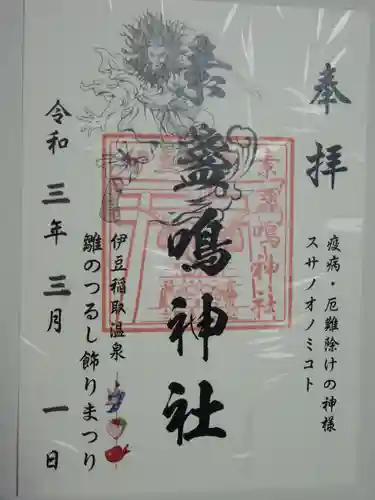 奉拝
疫病・厄難除けの神様
スサノオノミコト
素盞鳴神社
伊豆稲取温泉
雛のつるし飾りまつり
令和三年三月一日
素盞鳴神社